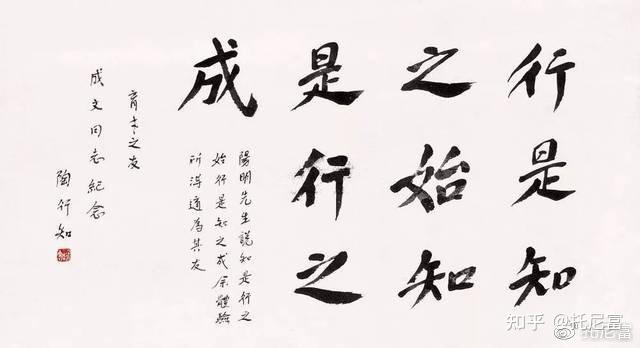 行是知
之始知
是行之
成
陽明先生說知是行之
始行是知之成余體驗
所得適為其反
育才之友
成文同志紀念
陶行知
知乎 @托尼富